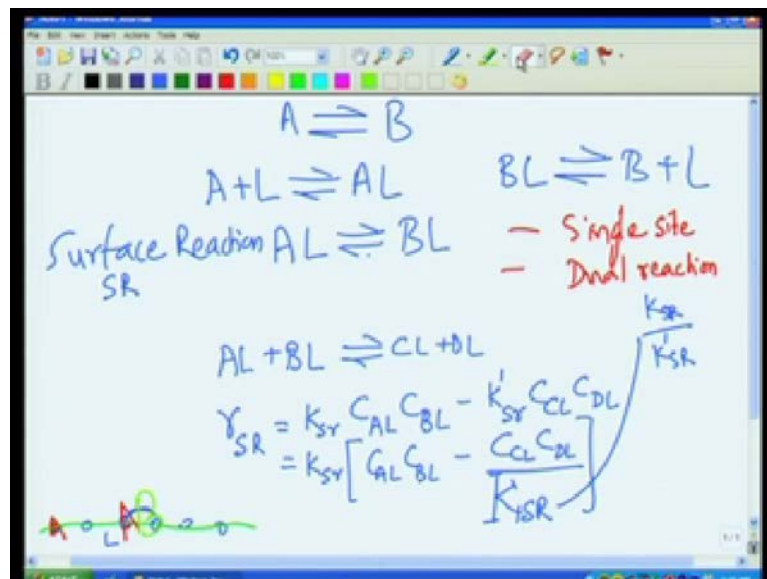 File Edit View Insert Actions Tools Help
A ⇌ B
A+L ⇌ AL
BL ⇌ B+L
Surface Reaction AL ⇌ BL
SR
— Single site
— Dual reaction
AL + BL ⇌ CL + DL
K_SR / K'_SR
r_SR = K_sr C_AL C_BL − K'_sr C_CL C_DL
= K_sr [ C_AL C_BL − C_CL C_DL / K_SR ]
A L A
1/1